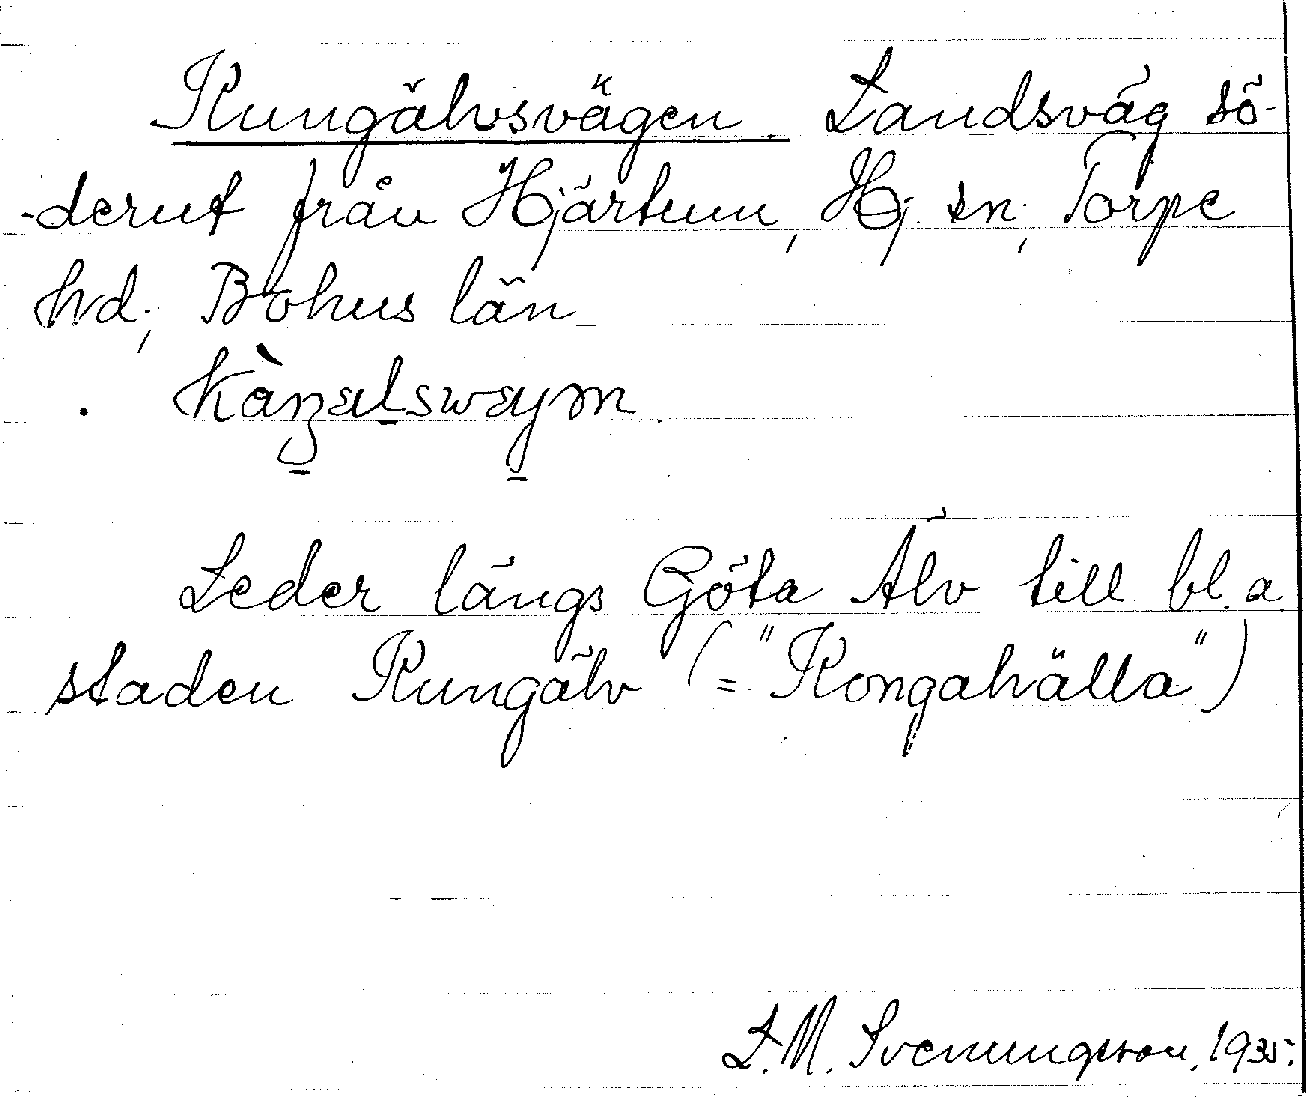 Kungälvsvägen. Landsväg sö-
-derut från Hjärtum, Hj sn, Torpe
hd., Bohus län
Leder längs Göta Älv till bl.a.
staden Kungälv (= "Kongahälla")
L.M. Svenungsson, 1935.